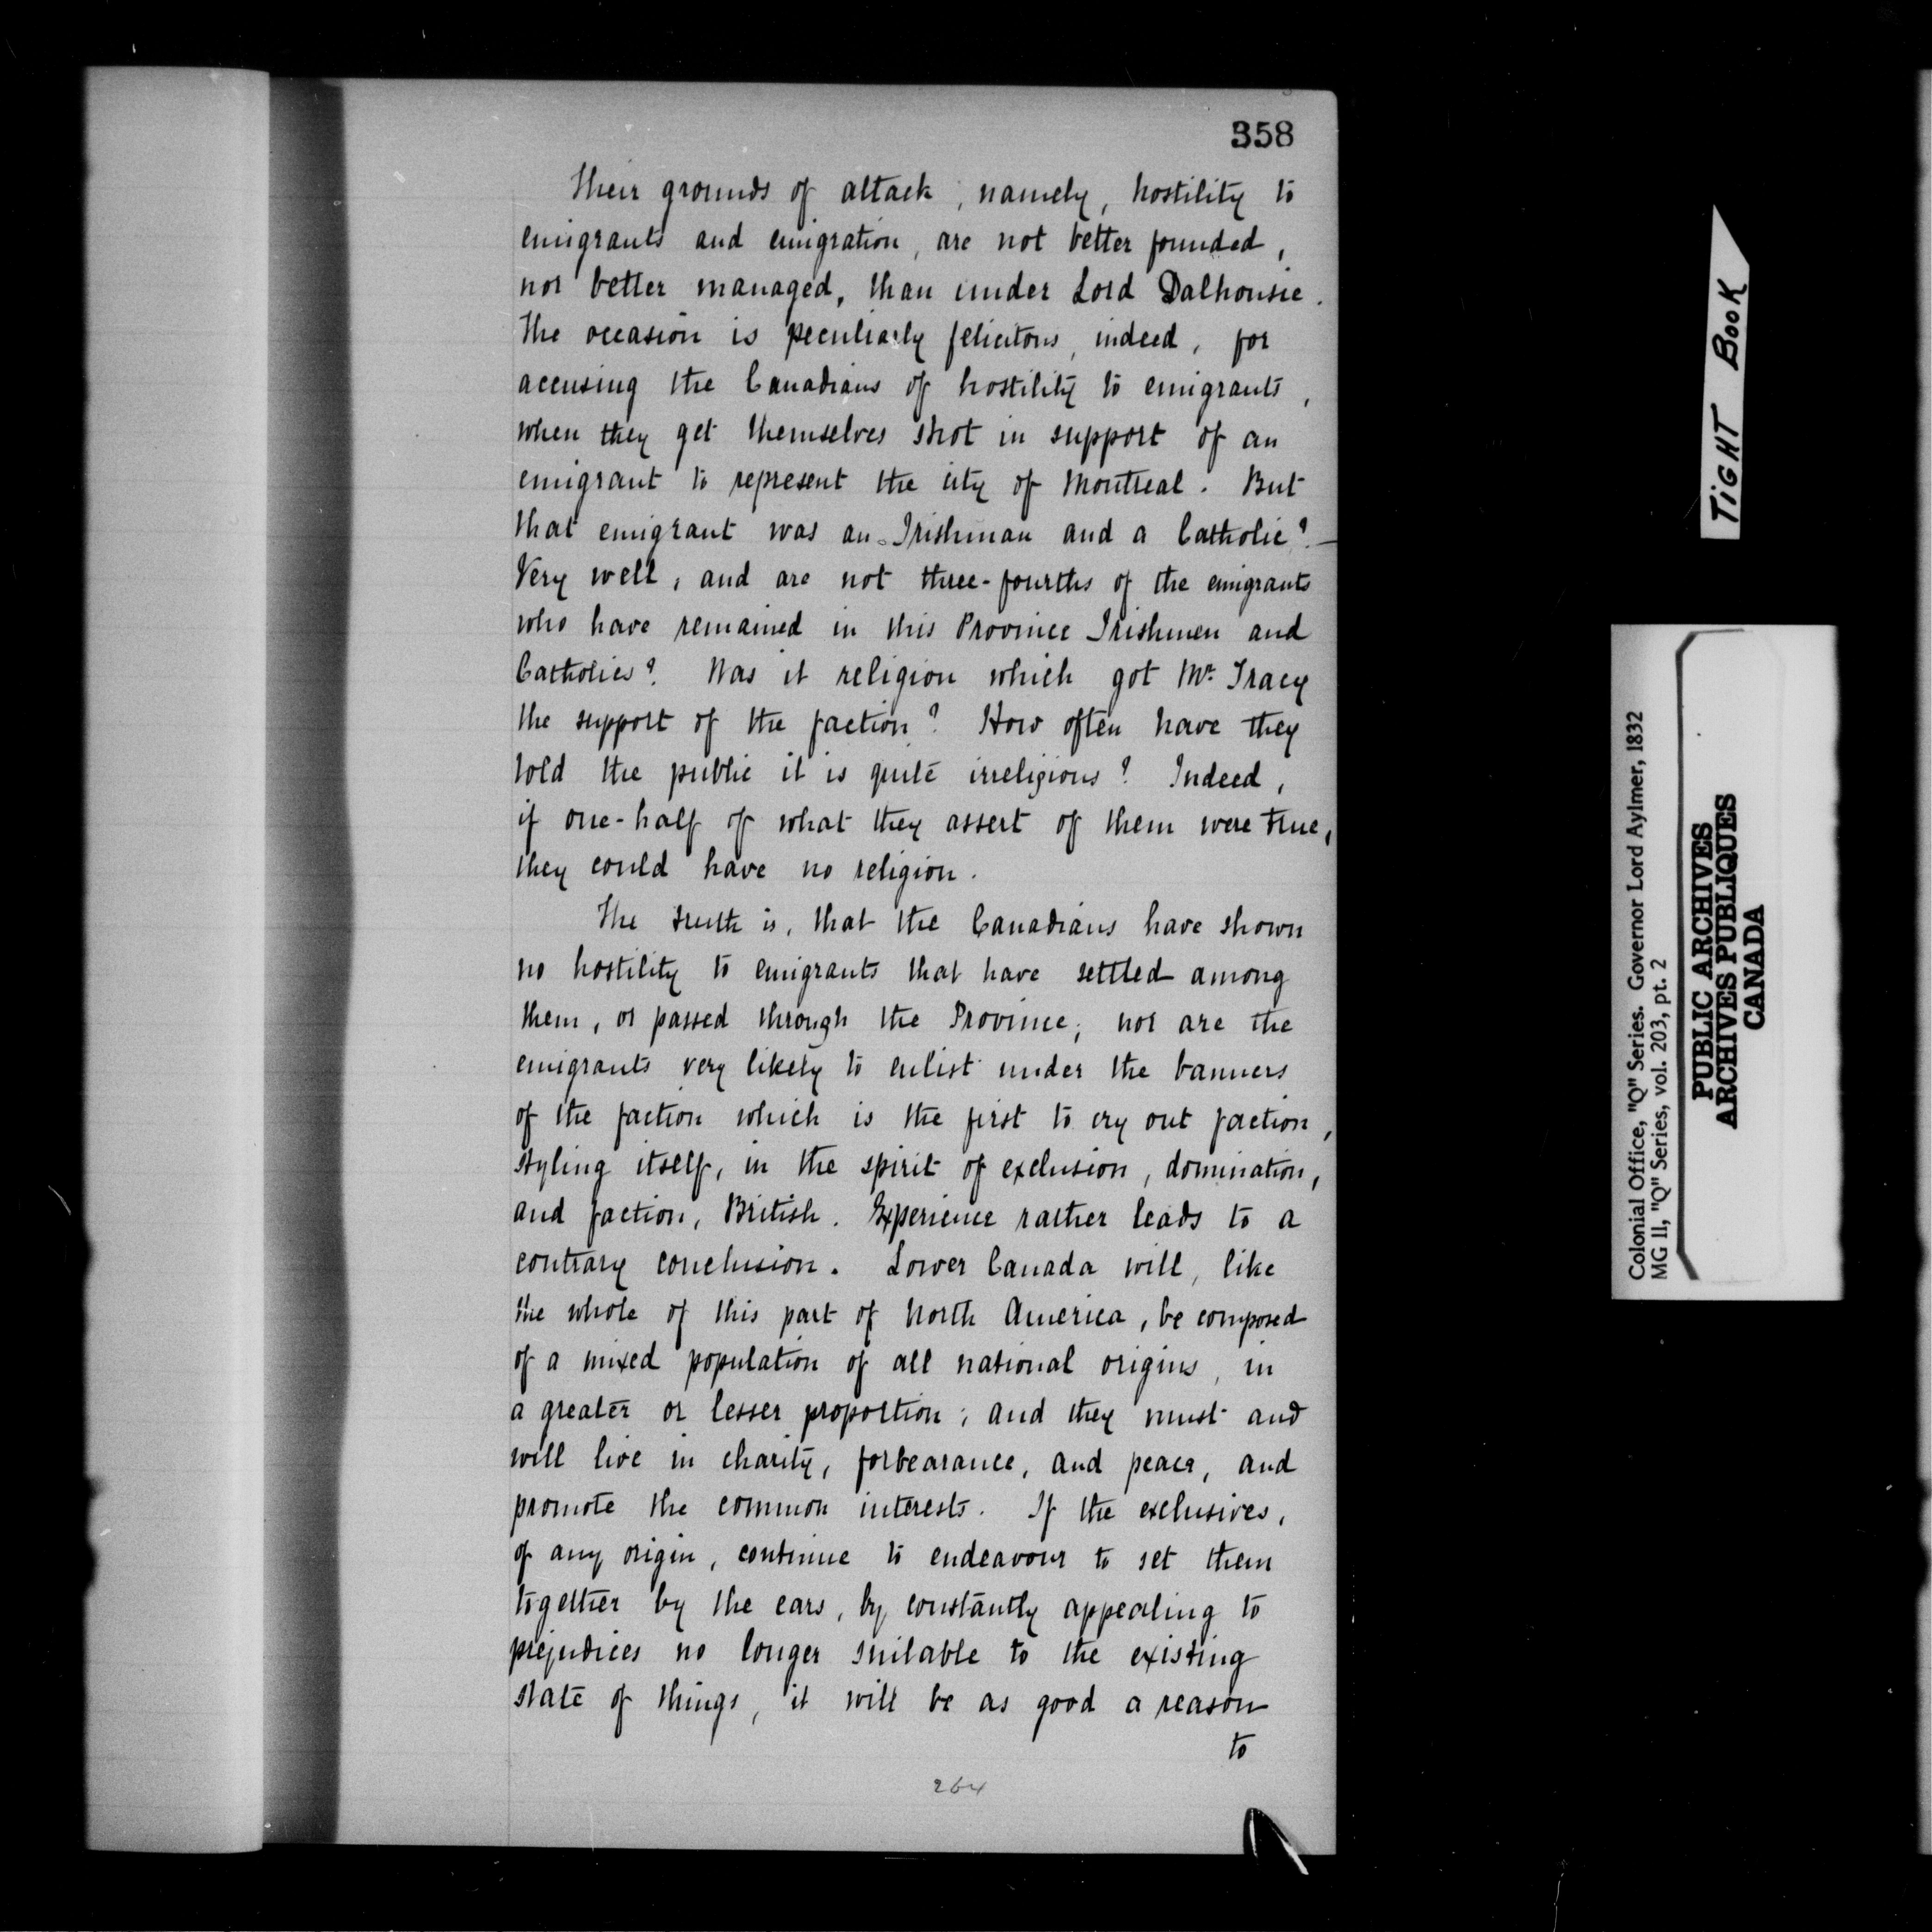 358
Their grounds of attack, namely, hostility to
emigrants and emigration, are not better founded,
nor better managed, than under Lord Dalhousie.
The occasion is peculiarly felicitous, indeed, for
accusing the Canadians of hostility to emigrants,
when they get themselves shot in support of an
emigrant to represent the city of Montreal. But
that emigrant was an Irishman and a Catholic? —
Very well, and are not three-fourths of the emigrants
who have remained in this Province Irishmen and
Catholics? Was it religion which got Mr. Tracy
the support of the faction? How often have they
told the public it is quite irreligious? Indeed,
if one-half of what they assert of them were true,
they could have no religion.
The truth is, that the Canadians have shown
no hostility to emigrants that have settled among
them, or passed through the Province; nor are the
emigrants very likely to enlist under the banners
of the faction which is the first to cry out faction,
styling itself, in the spirit of exclusion, domination,
and faction, British. Experience rather leads to a
contrary conclusion. Lower Canada will, like
the whole of this part of North America, be composed
of a mixed population of all national origins, in
a greater or lesser proportion; and they must and
will live in charity, forbearance, and peace, and
promote the common interests. If the exclusives,
of any origin, continue to endeavour to set them
together by the ears, by constantly appealing to
prejudices no longer suitable to the existing
state of things, it will be as good a reason
to
264
TIGHT BOOK
Colonial Office, "Q" Series. Governor Lord Aylmer, 1832
MG 11, "Q" Series, vol. 203, pt. 2
PUBLIC ARCHIVES
ARCHIVES PUBLIQUES
CANADA